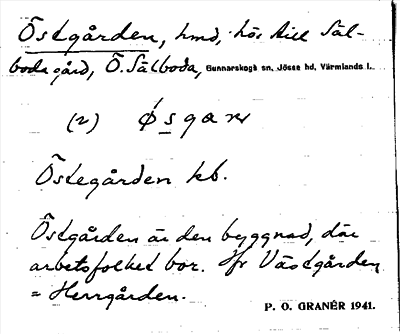 Östgården, hmd, hör till Säl-
boda gård, Ö. Sälboda, Gunnarskogs sn, Jösse hd, Värmlands l.
(2) ǿsgaṇ
Östegården kb.
Östgården är den byggnad, där
arbetsfolket bor. Jfr Västgården
= Herrgården.
P. O. GRANÉR 1941.